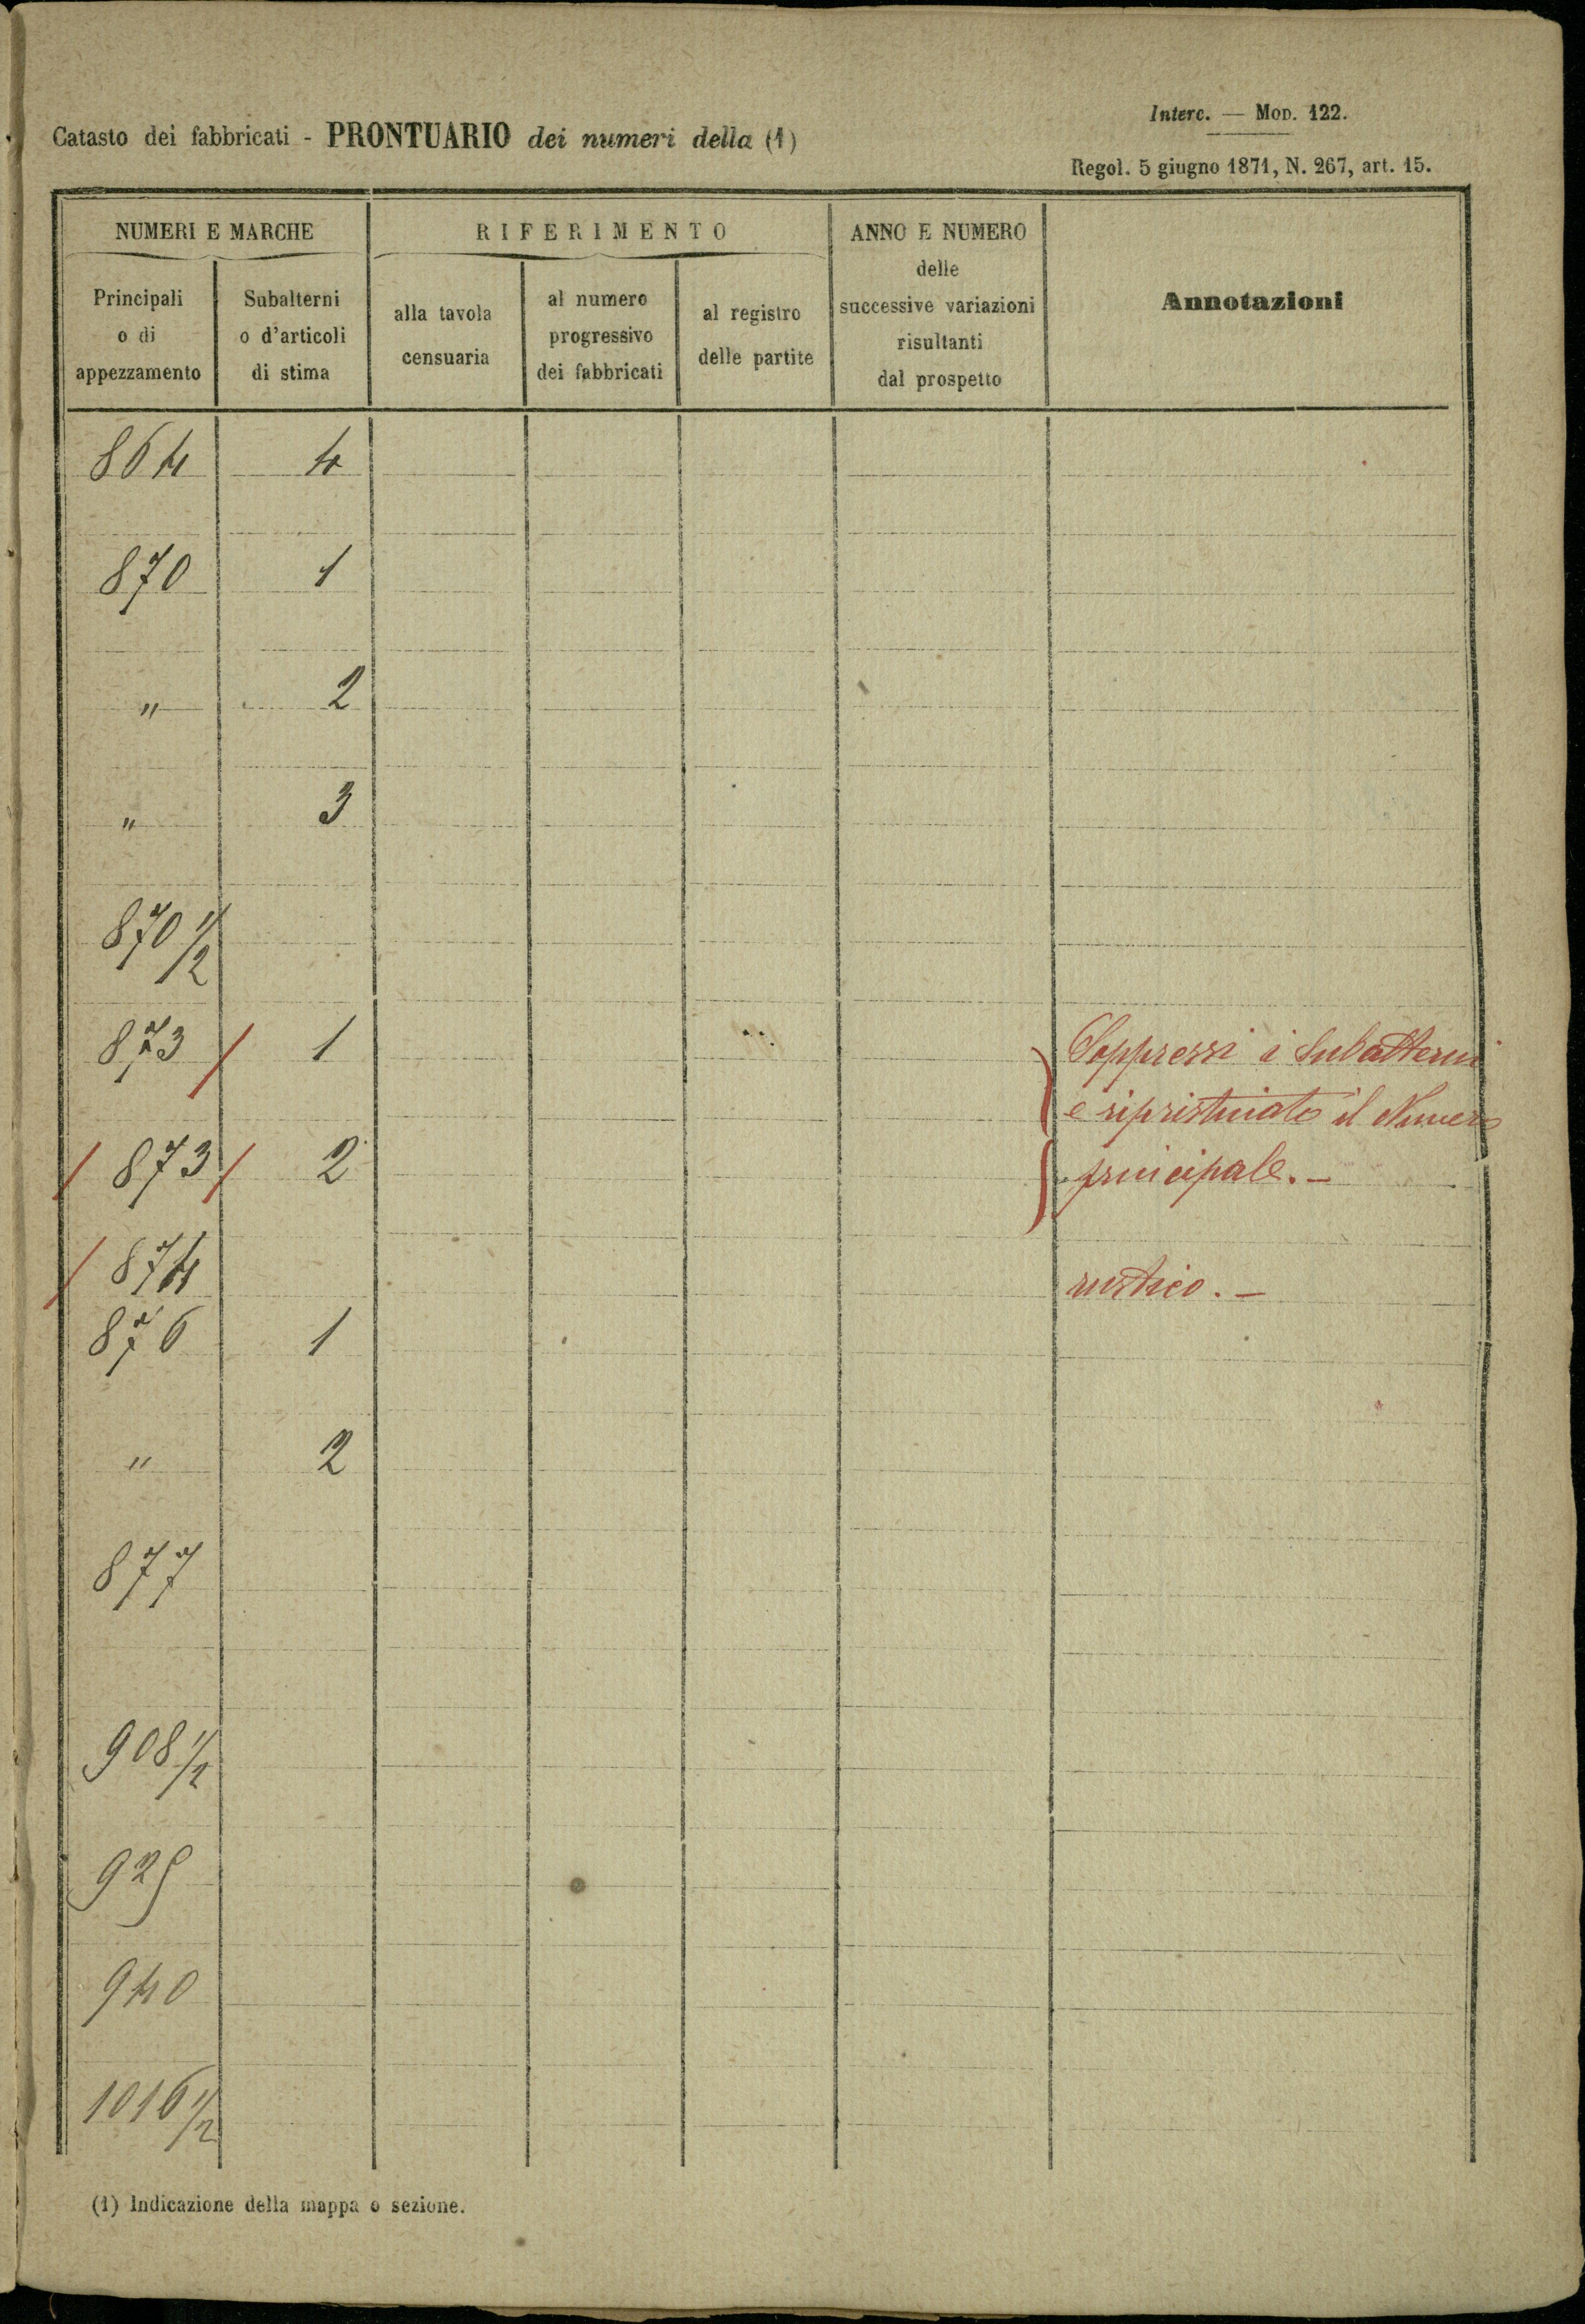 Interc. — Mod. 122.
Catasto dei fabbricati - PRONTUARIO dei numeri della (1)
Regol. 5 giugno 1871, N. 267, art. 15.
NUMERI E MARCHE
RIFERIMENTO
ANNO E NUMERO
delle
successive variazioni
risultanti
dal prospetto
Annotazioni
Principali
o di
appezzamento
Subalterni
o d'articoli
di stima
alla tavola
censuaria
al numero
progressivo
dei fabbricati
al registro
delle partite
864 4
870 1
" 2
" 3
870 1/2
873 / 1 Soppressi i Subalterni
e ripristinato il Numero
/ 873 / 2 principale. -
/ 874 rustico. -
876 1
" 2
877
908 1/2
925
940
1016 1/2
(1) Indicazione della mappa o sezione.